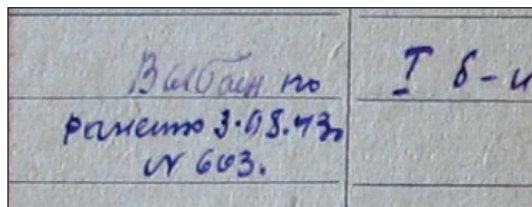 Выбыл по
ранению 3.08.43г
№ 603.
I б-н